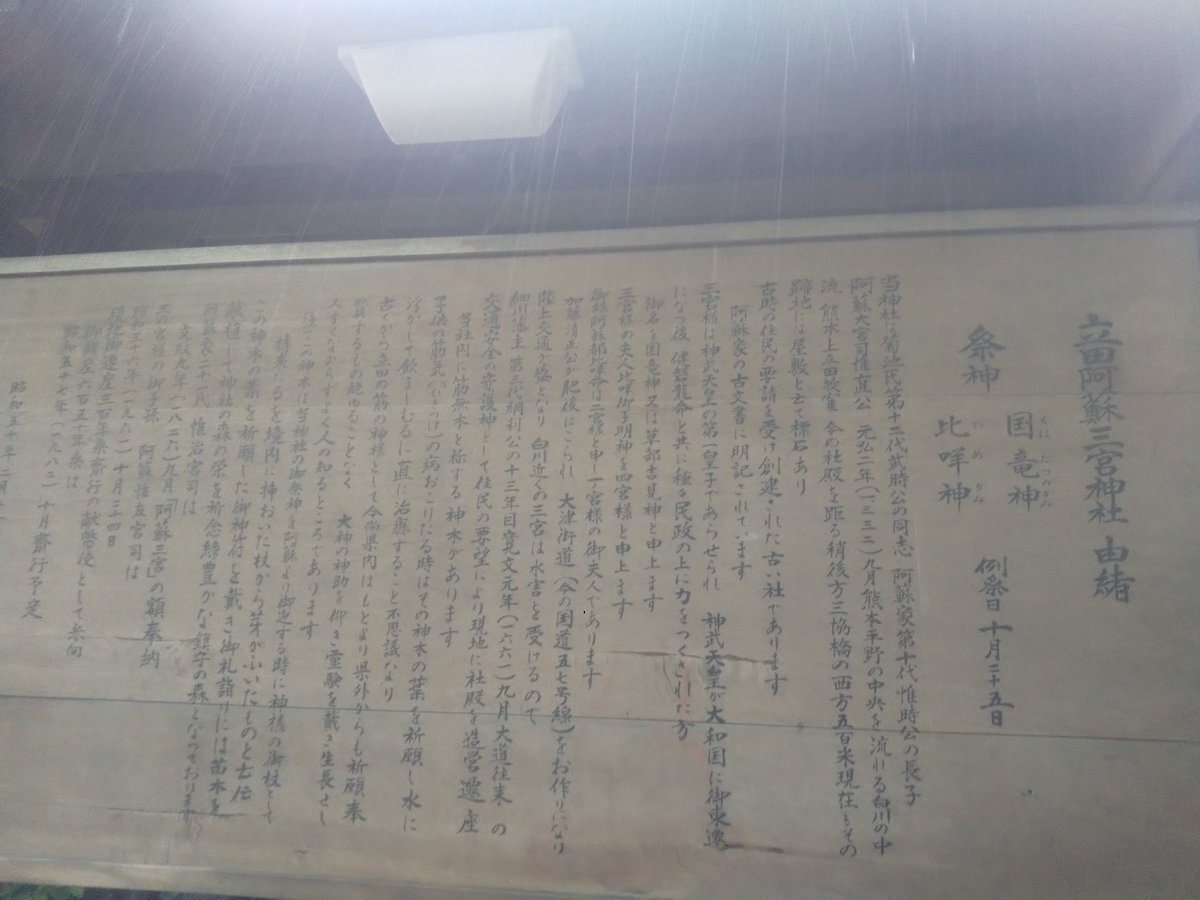 立田阿蘇三宮神社 由緒
祭神 国竜神 比咩神 例祭日 十月二十五日
くにたつのかみ
ひめかみ
当神社は菊池氏第十二代武時公の同志 阿蘇家第十代惟時公の長子
阿蘇大宮司惟直公 元弘二年(一三三二)九月熊本平野の中央を流れる白川の中
流 熊本上立田牧雀 今の社殿を距る稍後方三協橋の西方五百米現在もその
跡地には屋敷と云て標石あり
古時の住民の要請を受け創建された古い社であります
阿蘇家の古文書に明記されています
三宮様は神武天皇の第一皇子であらせられ 神武天皇が大和国に御東遷
になつ後 健磐龍命と共に種々民政の上に力をつくされた方
御名を国竜神又は草部吉見神と申上ます
三宮様の夫人比咩御子明神を四宮様と申上ます
御姫阿蘇都比咩命は二宮様と申し一宮様の御夫人であります
加藤清正公が肥後にこられ 大津街道(今の国道五七号線)をお作りになり
陸上交通が盛となり 白川近くの三宮は水害を受けるので
細川藩主 第三代綱利公の十三年目寛文元年(一六六一)九月大道往来の
交通安全の守護神として住民の要望により現地に社殿を造営遷座
当社内に筋無木と称する神木があります
子供の筋気(かんつけ)の病おこりたる時はその神木の葉を祈願し水に
浮かして飲ましむるに直に治療すること不思議なり
古くから立田の筋の神様として今尚県内はもとより県外からも祈願奉
賽するもの絶ゆることなく 大神の神助を仰き霊験を戴き生長せし
人々少なからずよく人の知るところであります
この神木は当神社の御祭神を阿蘇より御迎する時に神様の御杖として
持来られるを境内に挿おいた杖から芽がふいたものと云伝
この神木の葉を祈願した御神符を戴き御札詣りには苗木を
献植して神社の森の栄を祈念緑豊かな鎮守の森となつております
阿蘇家二十二代 惟治宮司は
文政九年(一八二六)九月「阿蘇三宮」の額奉納
三の宮様の御子孫 阿蘇惟友宮司は
昭和三十六年(一九六一)十月二十四日
現地御遷座三百年祭齋行の献幣使として参向
御鎮座六百五十年祭は
昭和五十七年(一九八二)十月齋行予定
昭和五十年二月